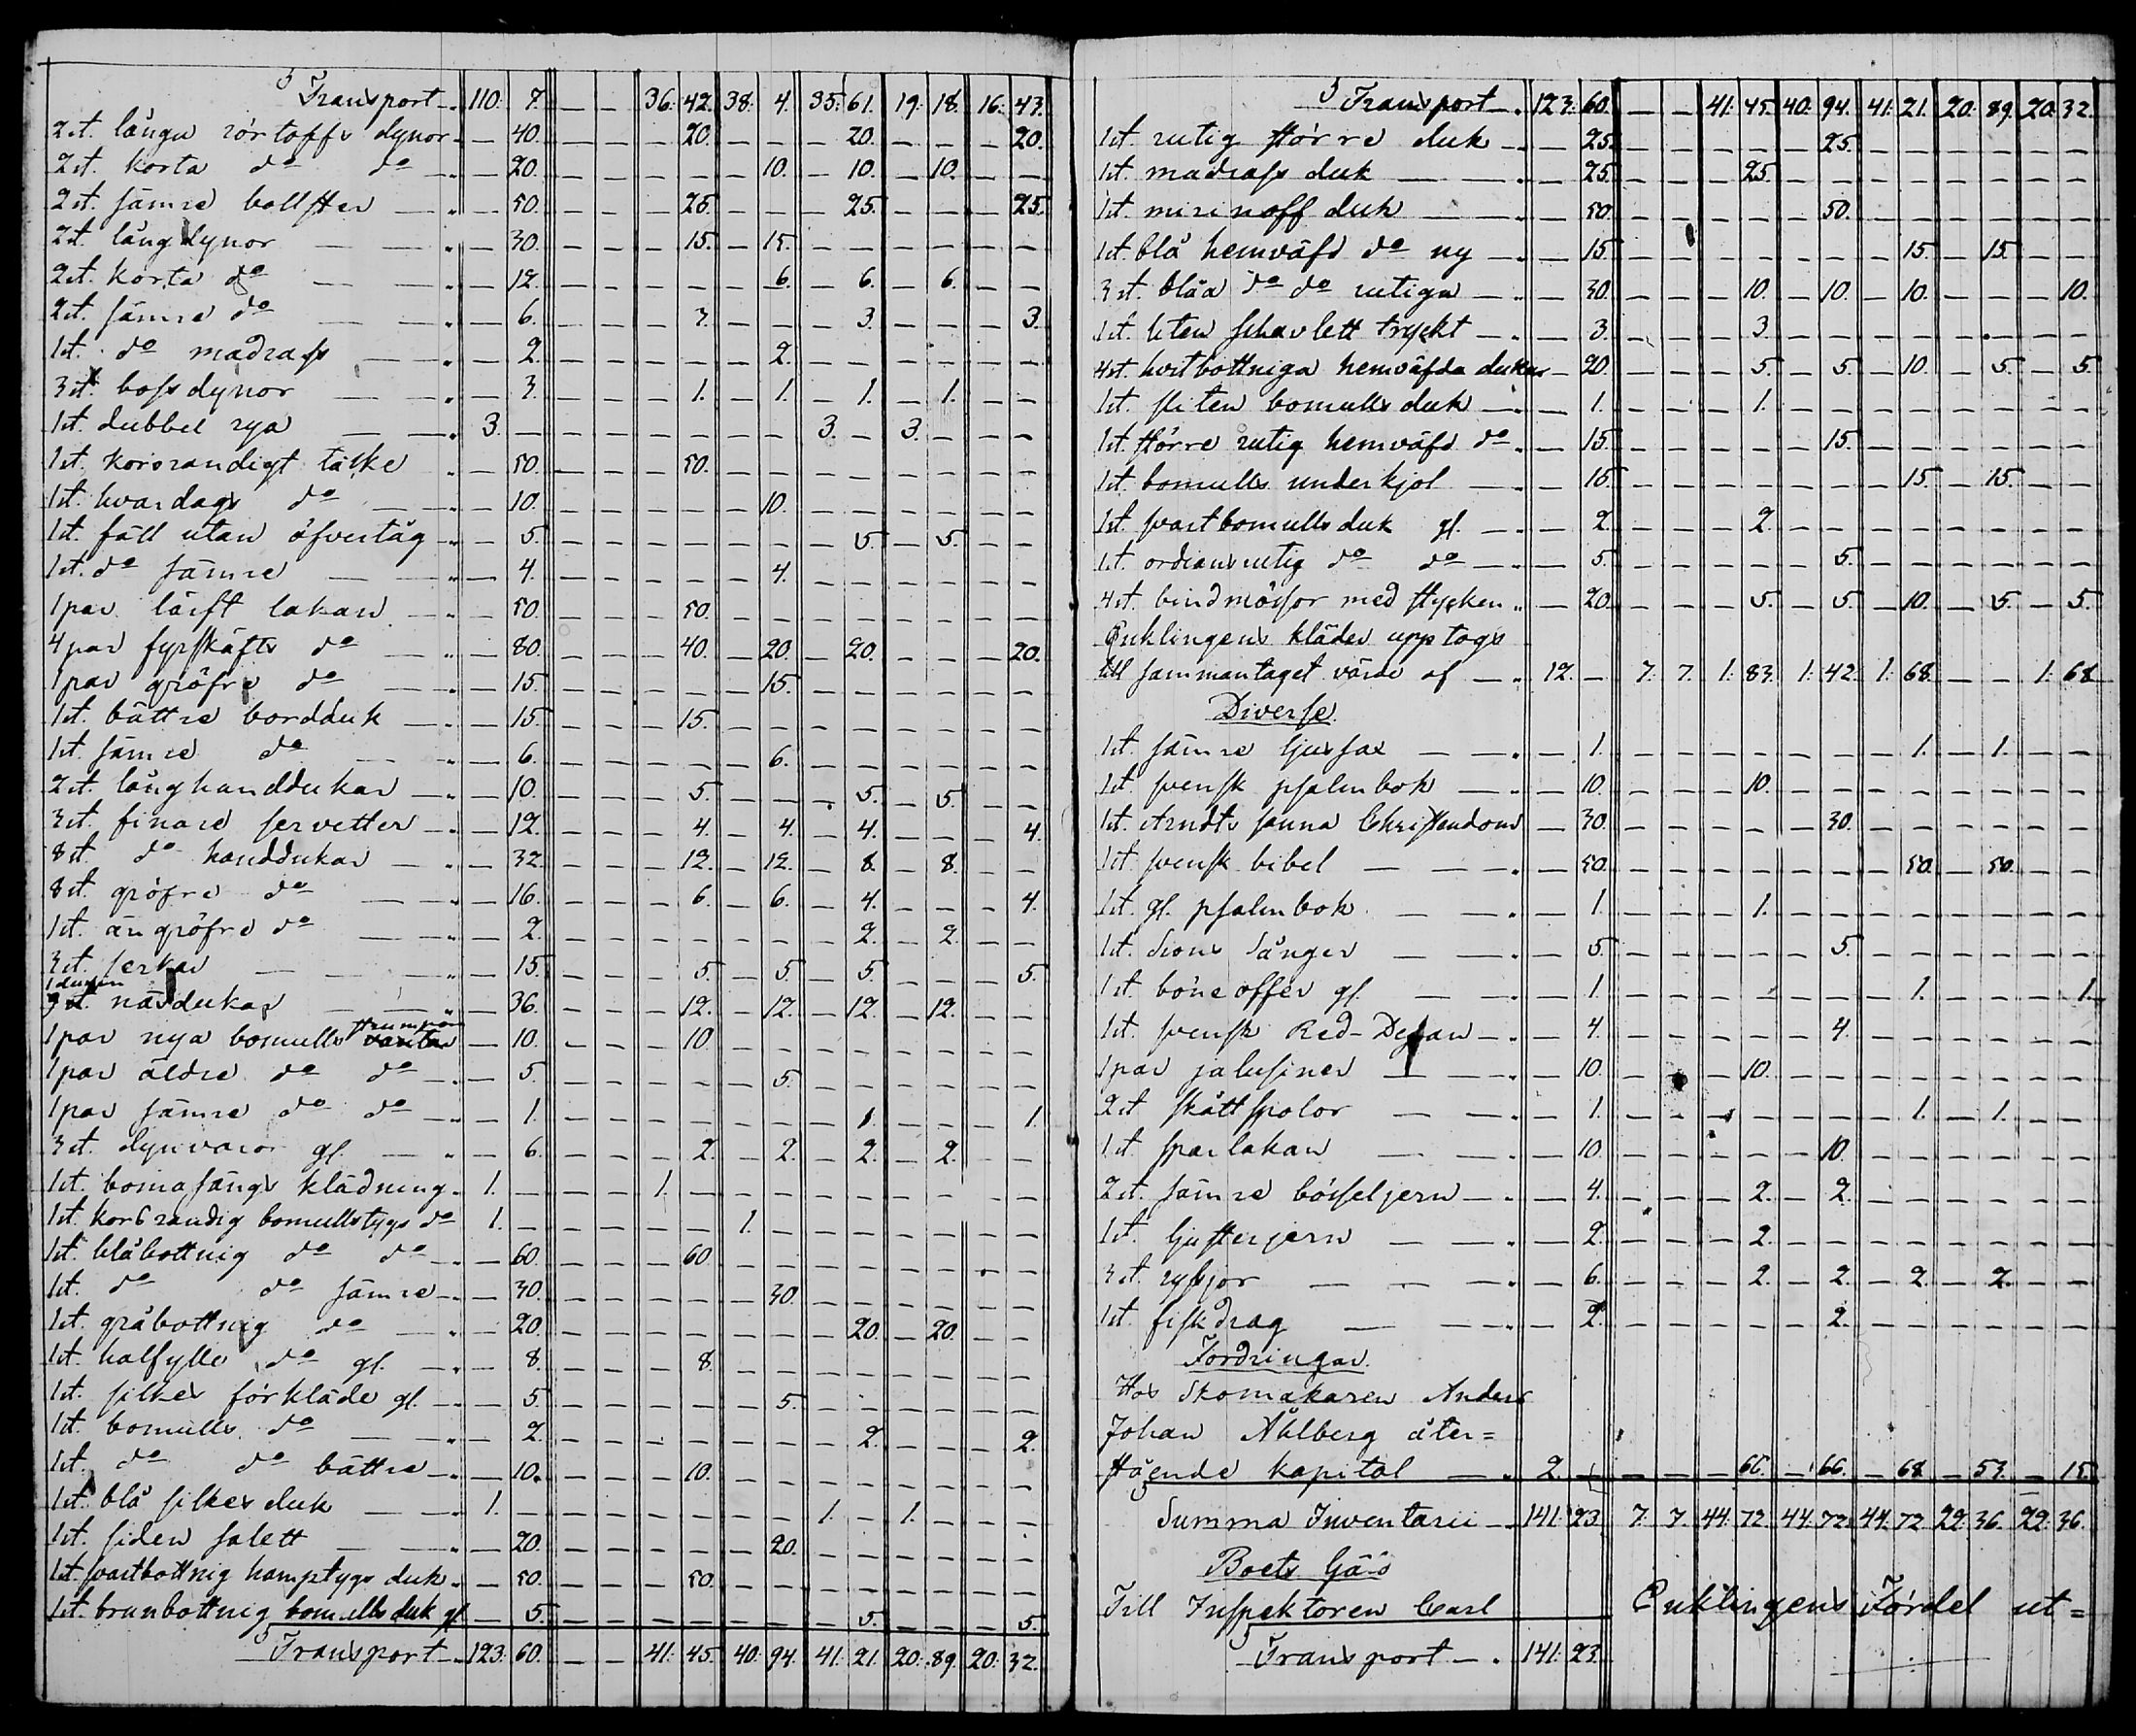 Transport 110: 7. — — 36: 42. 38: 4. 35: 61. 19: 18. 16: 43.
2 st. långa dynor — 40. — — — 20. — — — 20. — — — 20.
2 st. korta do do — 20. — — — — — 10. — 10. — 10. — —
2 st. sämre bollster — 50. — — — 25. — — — 25. — — — 25.
2 st. långdynor — 30. — — — 15. — 15. — — — — — —
2 st. korta do — 12. — — — — — 6. — 6. — 6. — —
2 st. sämre do — 6. — — — 3. — — — 3. — — — 3.
1 st. do madrass — 2. — — — — — 2. — — — — — —
3 st. bossdynor — 3. — — — 1. — 1. — 1. — 1. — —
1 st. dubbel rya 3. — — — — — — — 3. — 3. — — —
1 st. korsrandigt täcke — 50. — — — 50. — — — — — — — —
1 st. hvardags do — 10. — — — — — 10. — — — — — —
1 st. fäll utan öfvertåg — 5. — — — — — — — 5. — 5. — —
1 st. do sämre — 4. — — — — — 4. — — — — — —
1 par lärft lakan — 50. — — — 50. — — — — — — — —
4 par fyrskäfts do — 80. — — — 40. — 20. — 20. — — — 20.
1 par gröfre do — 15. — — — — — 15. — — — — — —
1 st. bättre bordduk — 15. — — — 15. — — — — — — — —
1 st. sämre do — 6. — — — — — 6. — — — — — —
2 st. långhanddukar — 10. — — — 5. — — — 5. — 5. — —
3 st. finare servetter — 12. — — — 4. — 4. — 4. — — — 4.
8 st. do handdukar — 32. — — — 12. — 12. — 8. — 8. — —
8 st. gröfre do — 16. — — — 6. — 6. — 4. — — — 4.
1 st. än gröfre do — 2. — — — — — — — 2. — 2. — —
3 st. serkar — 15. — — — 5. — 5. — 5. — — — 5.
1 dussin
st. näsdukar — 36. — — — 12. — 12. — 12. — 12. — —
1 par nya bomulls strumpor vantar — 10. — — — 10. — — — — — — — —
1 par äldre do do — 5. — — — — — 5. — — — — — —
1 par sämre do do — 1. — — — — — — — 1. — — — 1.
3 st. dynvaror gl. — 6. — — — 2. — 2. — 2. — 2. — —
1 st. klädning 1. — — — 1. — — — — — — — — —
1 st. korsrandig bomullstygs do 1. — — — — — 1. — — — — — — —
1 st. blåbottnig do do — 60. — — — 60. — — — — — — — —
1 st. do do sämre — 30. — — — — — 30. — — — — — —
1 st. gråbottnig do — 20. — — — — — — — 20. — 20. — —
1 st. halfylle do gl. — 8. — — — 8. — — — — — — — —
1 st. silkes förkläde gl. — 5. — — — — — 5. — — — — — —
1 st. bomulls do — 2. — — — — — — — 2. — — — 2.
1 st. do do bättre — 10. — — — 10. — — — — — — — —
1 st. blå silkesduk 1. — — — — — — — 1. — 1. — — —
1 st. siden salett — 20. — — — — — 20. — — — — — —
1 st. svartbottnig kamptygs duk — 50. — — — 50. — — — — — — — —
1 st. brunbottnig bomulls duk gl — 5. — — — — — — — 5. — — — 5.
Transport 123: 60. — — 41: 45. 40: 94. 41: 21. 20: 89. 20: 32.
Transport 123: 60. — — 41: 45. 40: 94. 41: 21. 20: 89. 20: 32.
1 st. rutig större duk — 25. — — — — — 25. — — — — — —
1 st. madrass duk — 25. — — — 25. — — — — — — — —
1 st. duk — 50. — — — — — 50. — — — — — —
1 st. blå hemväfd do ny — 15. — — — — — — — 15. — 15. — —
3 st. blåa do do rutiga — 30. — — — 10. — 10. — 10. — — — 10.
1 st. liten schavlett tryckt — 3. — — — 3. — — — — — — — —
4 st. hvitbottniga hemväfda dukar — 20. — — — 5. — 5. — 10. — 5. — 5.
1 st. sliten bomulls duk — 1. — — — 1. — — — — — — — —
1 st. större rutig hemväfd do — 15. — — — — — 15. — — — — — —
1 st. bomulls underkjol — 15. — — — — — — — 15. — 15. — —
1 st. svart bomulls duk gl. — 2. — — — 2. — — — — — — — —
1 st. do do — 5. — — — — — 5. — — — — — —
4 st. bindmössor med stycken — 20. — — — 5. — 5. — 10. — 5. — 5.
Enklingens kläder upptogs
till sammantaget värde af 12. — 7: 7. 1: 83. 1: 42. 1: 68. — — 1: 68.
Diverse
1 st. sämre ljussax — 1. — — — — — — — 1. — 1. — —
1 st. svensk psalmbok — 10. — — — 10. — — — — — — — —
1 st. Arndts sanna Christendom — 30. — — — — — 30. — — — — — —
1 st. svensk bibel — 50. — — — — — — — 50. — 50. — —
1 st. gl. psalmbok — 1. — — — 1. — — — — — — — —
1 st. Sions Sånger — 5. — — — — — 5. — — — — — —
1 st. böneoffer gl. — 1. — — — — — — — 1. — — — 1.
1 st. svensk Red- — 4. — — — — — 4. — — — — — —
1 par jalusiner — 10. — — — 10. — — — — — — — —
2 st skåttspolor — 1. — — — — — — — 1. — 1. — —
1 st. sparlakan — 10. — — — — — 10. — — — — — —
2 st. sämre — 4. — — — 2. — 2. — — — — — —
1 st. ljusterjern — 2. — — — 2. — — — — — — — —
3 st. ryssjor — 6. — — — 2. — 2. — 2. — 2. — —
1 st. fiskdrag — 2. — — — — — 2. — — — — — —
Fordringar
Hos Skomakaren Anders
Johan Åhlberg åter=
stående kapital 2. — — — — 66. — 66. — 68. — — 15.
Summa Inventarii 141: 23. 7: 7. 44: 72. 44: 72. 44: 72. 22: 36. 22: 36.
Boets Gäld
Till Inspektoren Carl Enklingens Fördel ut=
Transport 141: 23.